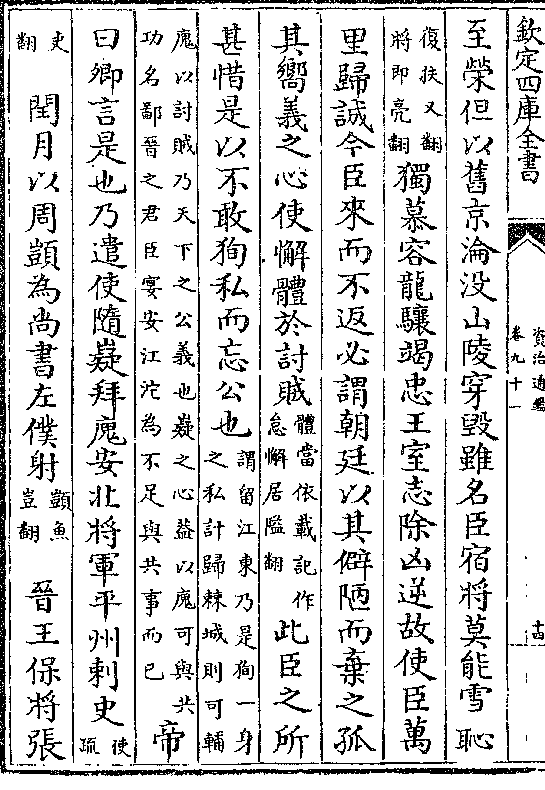 欽定四庫全書
資治通鑑
卷九十一
十四
至榮但以舊京淪没山陵穿毀雖名臣宿將莫能雪恥
復扶又翻
將即亮翻
獨慕容龍驤竭忠王室志除凶逆故使臣萬
里歸誠今臣來而不返必謂朝廷以其僻陋而棄之孤
其嚮義之心使懈體於討賊
體當依載記作
怠懈居隘翻
此臣之所
甚惜是以不敢狥私而忘公也
謂留江東乃是狥一身
之私計歸棘城則可輔
廆以討賊乃天下之公義也嶷之心益以廆可與共
功名鄙晉之君臣宴安江沱為不足與共事而已
帝
曰卿言是也乃遣使隨嶷拜廆安北將軍平州刺史
使
疏
吏
翻
閏月以周顗為尚書左僕射
顗魚
豈翻
晉王保將張